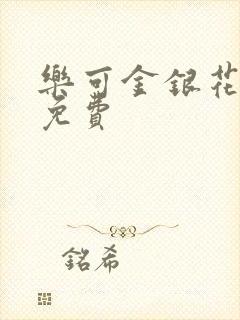 樂可金銀花
免費
銘希